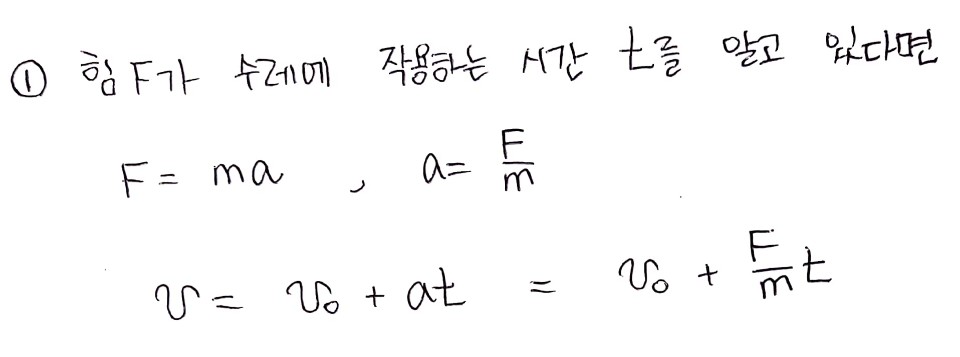 ① 힘 F가 수레에 작용하는 시간 t를 알고 있다면
F = ma , a = F/m
v = v₀ + at = v₀ + F/m t